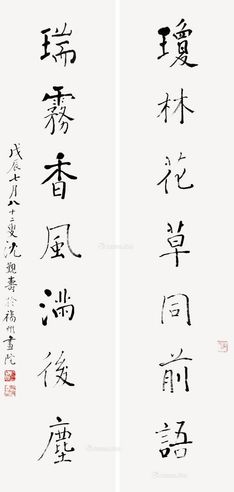 瓊林花草同前語
瑞霧香風滿後塵
戊辰七月八十二叟沈覲壽於福州畫院